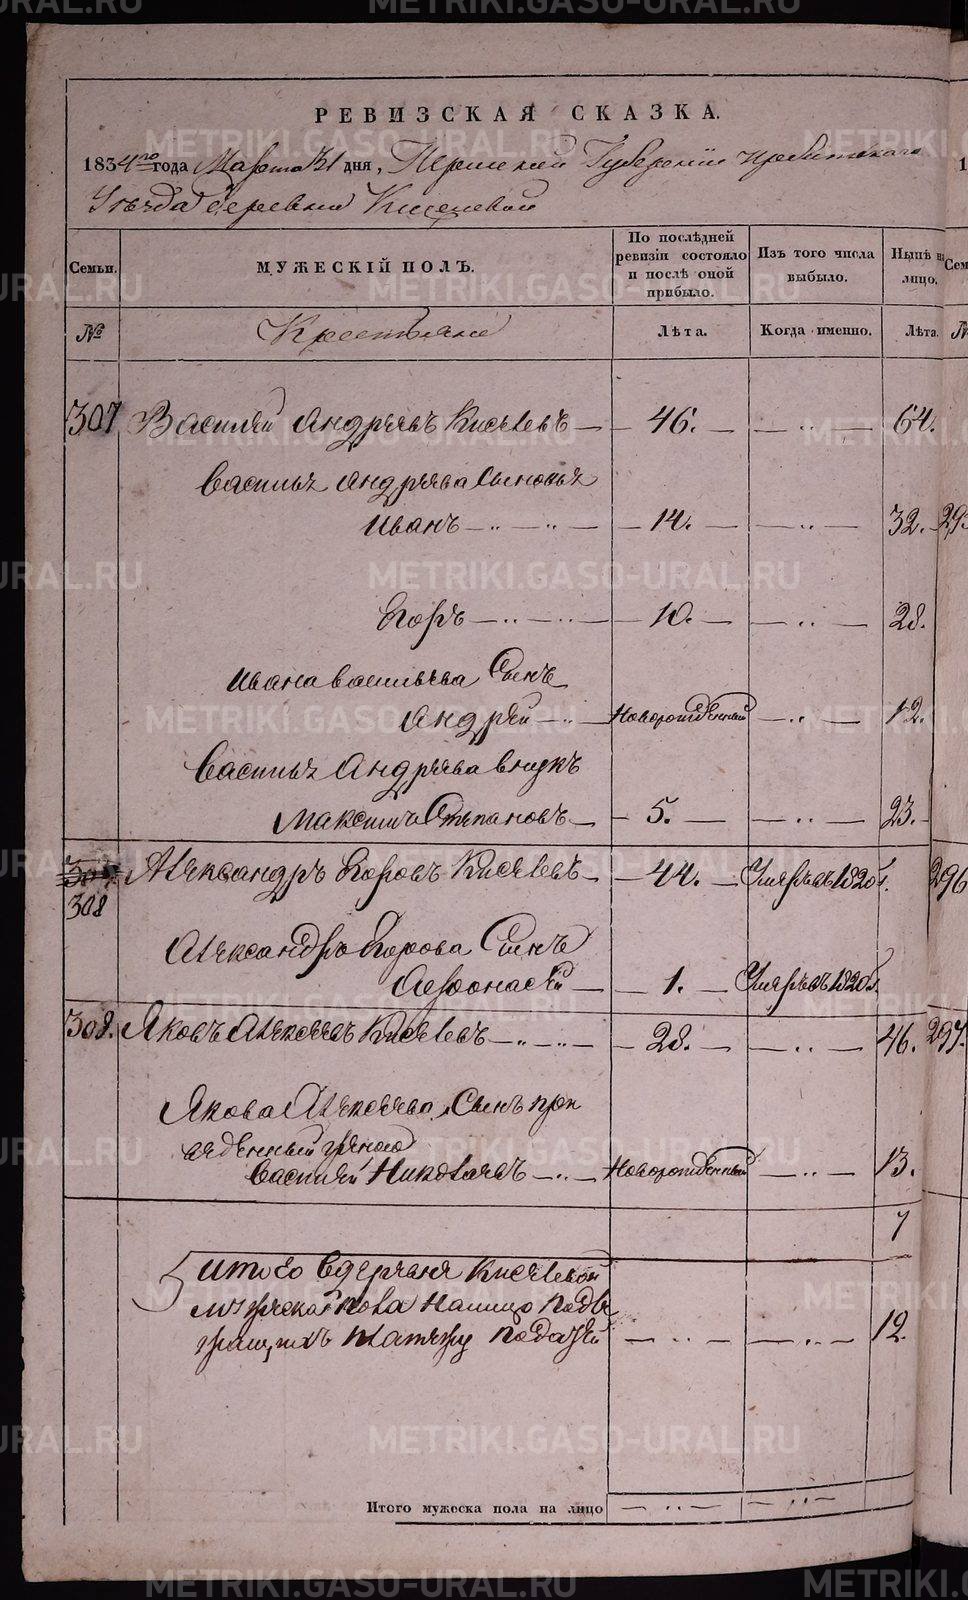 РЕВИЗСКАЯ СКАЗКА.
1834го года Марта 31 дня, Пермской Губернии Ирбитскаго
Уезда деревни Киселевой
Семьи. МУЖЕСКІЙ ПОЛЪ. По послѣдней ревизіи состояло и послѣ оной прибыло. Изъ того числа выбыло. Нынѣ на лицо.
№ Крестьяне Лѣта. Когда именно. Лѣта.
307 Василей Андреевъ Киселевъ — 46. — — „ — 64.
Василья Андреева Сыновья
Иванъ — „ — „ — 14. — — „ — 32.
Егоръ — „ — „ — 10. — — „ — 28.
Ивана васильева Сынъ
Андрей — „ — Новорожденный — „ — 12.
Василья Андреева внукъ
Максимъ Степановъ — 5. — — „ — 23.
307.
308 Александръ Егоровъ Киселевъ — 44. — Умеръ въ 1820 г.
Александра Егорова Сынъ
Афонасей — 1. — Умеръ въ 1820 г.
308. Яковъ Алексеевъ Киселевъ — „ — „ — 28. — — „ — 46.
Якова Алексеева Сынъ
Василей Николаевъ — „ — Новорожденный — „ — 13.
7
Итого в деревне Киселевой
мужеска пола налицо
платежу подадей — „ — — „ — 12.
Итого мужеска пола на лицо — „ — — „ —
295
296
297.
METRIKI.GASO-URAL.RU